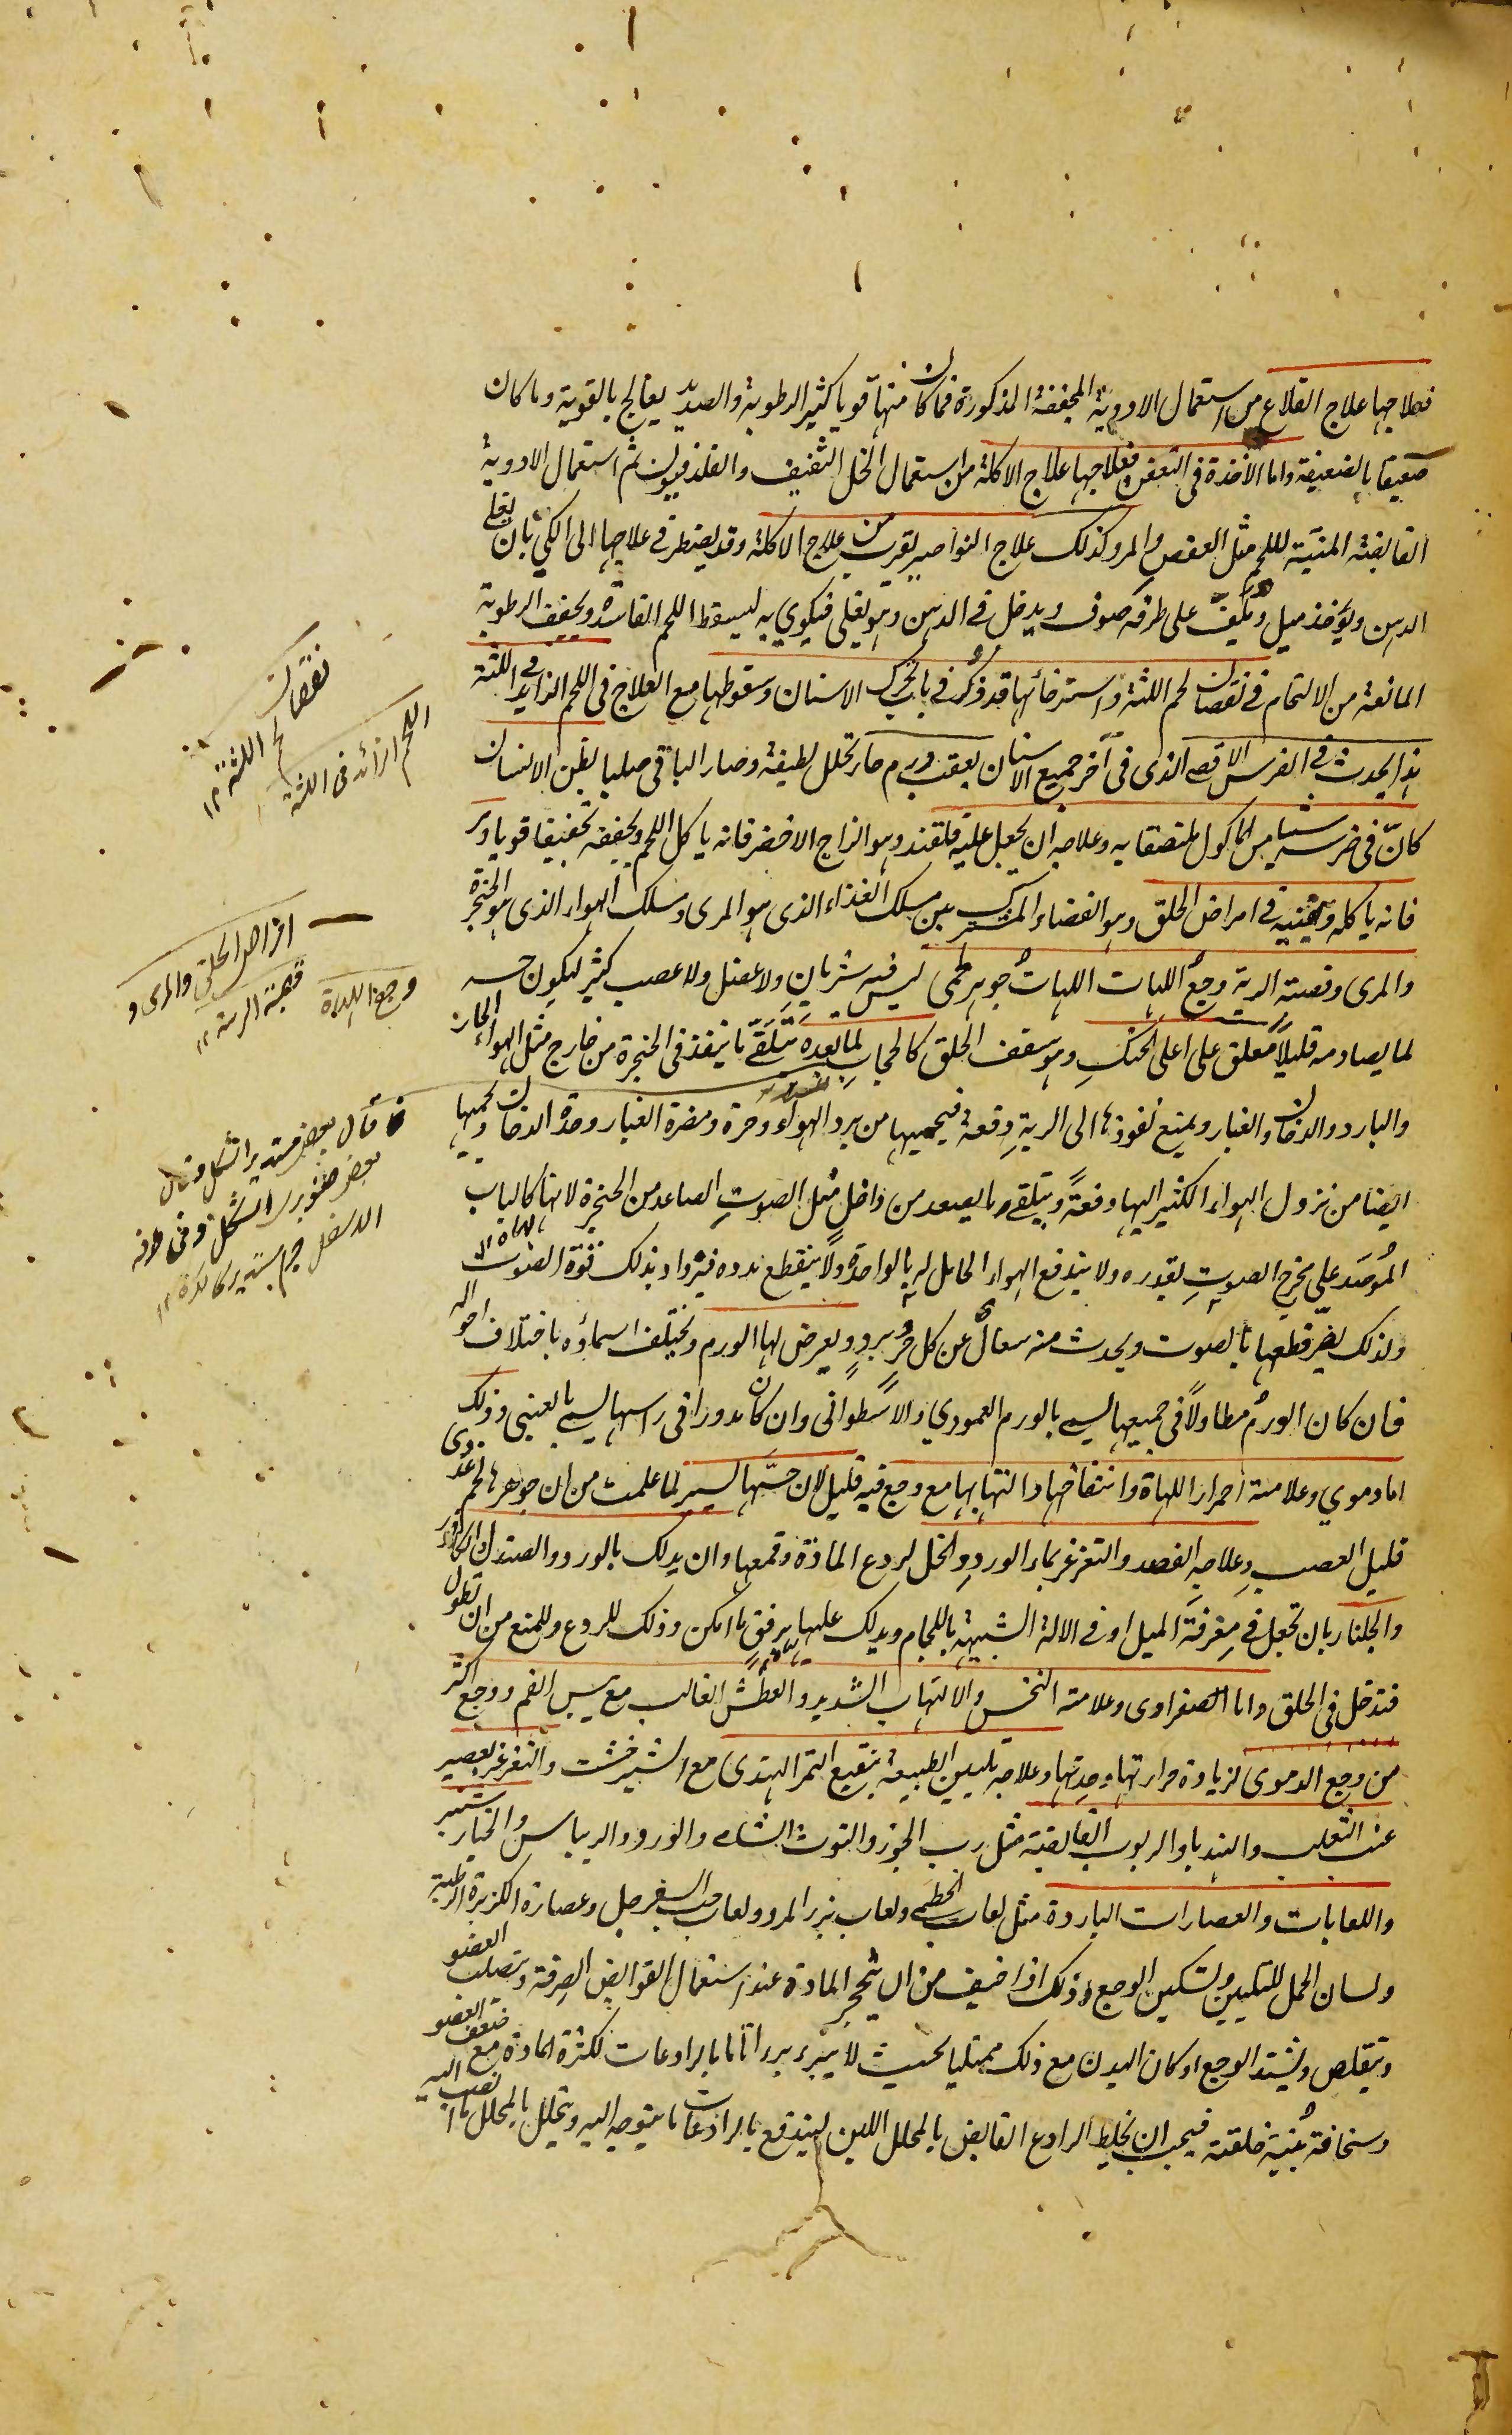 فعلاجها علاج القلاع من استعمال الادوية المجففة المذكورة فما كان منها قويا كثير الرطوبة والصديد يعالج بالقوية وما كان
ضعيفا بالضعيفة واما الآخذة فى التعفن فعلاجها علاج الاكلة من استعمال الخل الثقيف والقلدفيون ثم استعمال الادوية
القابضة المنبتة للحم مثل العفص والمر وكذلك علاج النواصير يقرب من علاج الاكلة وقد يضطر فى علاجها الى الكي بان يغلى
الدهن ويؤخذ ميل ويلف على طرفه صوف ويدخل فى الدهن وهو يغلى فيكوى به ليسقط اللحم الفاسد ويجفف الرطوبة
المانعة من الالتحام فى نقصان لحم اللثة واسترخائها قد ذكر فى باب تحرك الاسنان وسقوطها مع العلاج فى اللحم الزايد فى اللثة
هذا يحدث فى الضرس الاقصى الذى فى آخر جميع الاسنان بعقب ورم حار تحلل لطيفه وصار الباقى صلبا يظن الانسان
كان فى ضرسه شيأ من المأكول ملتصقا به وعلاجه ان يجعل عليه قلقند وهو الزاج الاخضر فانه ياكل اللحم ويجففه تجفيفا قويا
فانه ياكله ويفنيه فى امراض الحلق وهو الفضاء المشترك بين مسلك الغذاء الذى هو المرى ومسلك الهواء الذى هو الحنجرة
والمرى وقصبة الرية وجع اللهات اللهات جوهر لحمى ليس فيه شريان ولا عضل ولا عصب كثير ليكون حسه
لما يصادمه قليلا معلق على اعلى الحنك وهو سقف الحلق كالحجاب لما بعده يتلقى ما ينفذ فى الحنجرة من خارج مثل الهواء الحار
والبارد والدخان والغبار ويمنع نفوذها الى الرية دفعة فيحميها من برد الهواء وحره ومضرة الغبار وحدة الدخان ويحميها
ايضا من نزول الهواء الكثير اليها دفعة ويتلقى ما يصعد من داخل مثل الصوت الصاعد من الحنجرة لانها كالباب
المُوصَد على مخرج الصوت بقدره ولا يندفع الهواء الحامل له بالواحدة ولا ينقطع مدده فيزداد بذلك قوة الصوت
ولذلك يضر قطعها بالصوت ويحدث منه سعال عن كل حر وبرد ويعرض لها الورم ويختلف اسماؤه باختلاف احواله
فان كان الورم مطاولا فى جميعها يسمى بالورم العمودي والاسطوانى وان كان مدورا فى راسها يسمى بالعنبى وذلك
اما دموي وعلامته احمرار اللهاة وانتفاخها والتهابها مع وجع فيه قليل لان حسها يسير لما علمت من ان جوهرها لحم غددى
قليل العصب وعلاجه الفصد والتغرغر بماء الورد والخل لردع المادة وقمعها وان يدلك بالورد والصندل والكافور
والجلنار بان تجعل فى مغرفة الميل او فى الآلة الشبيهة باللجام ويدلك عليها برفق ما امكن وذلك للردع وللمنع من ان تطول
فتدخل فى الحلق واما الصفراوى وعلامته النخس والالتهاب الشديد والعطش الغالب مع يبس الفم ووجع اكثر
من وجع الدموى لزيادة حرارتها وحدتها وعلاجه تليين الطبيعة بنقيع التمر الهندى مع الشيرخشت والتغرغر بعصير
عنب الثعلب والهندبا والربوب القابضة مثل رب الجوز والتوت الشامى والورد والريباس والخيار شنبر
واللعابات والعصارات الباردة مثل لعاب الخطمى ولعاب بزر المرو ولعاب حب السفرجل وعصارة الكزبرة الرطبة
ولسان الحمل للتليين وتسكين الوجع وذلك اذا خيف من ان يتحجر المادة عند استعمال القوابض الصرفة ويتصلب العضو
ويتقلص ويشتد الوجع او كان البدن مع ذلك ممتليا بحيث لا يبرء برءا تاما بالرادعات لكثرة المادة مع ضعف العضو
وسخافة بنية خلقته فيجب ان يخلط الرادع القابض بالمحلل اللين ليندفع بالرادعات ما يتوجه اليه ويتحلل بالمحلل ما انصب اليه
نقصان
لحم اللثة ١٢
اللحم الزائد فى اللثة
امراض الحلق والمرى و
قصبة الرية ١٢
وجع اللهاة
قال بعض مستدير الشكل وقال
بعض صنوبرى الشكل وفى طرفه
الاسفل جرم مستدير كالكرة ١٢